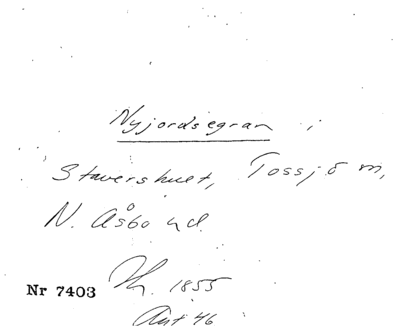 Nyjordsegran i
Stavershult, Tossjö m,
N. Åsbo hd.
Nr 7403 Th. 1855
Ant 46